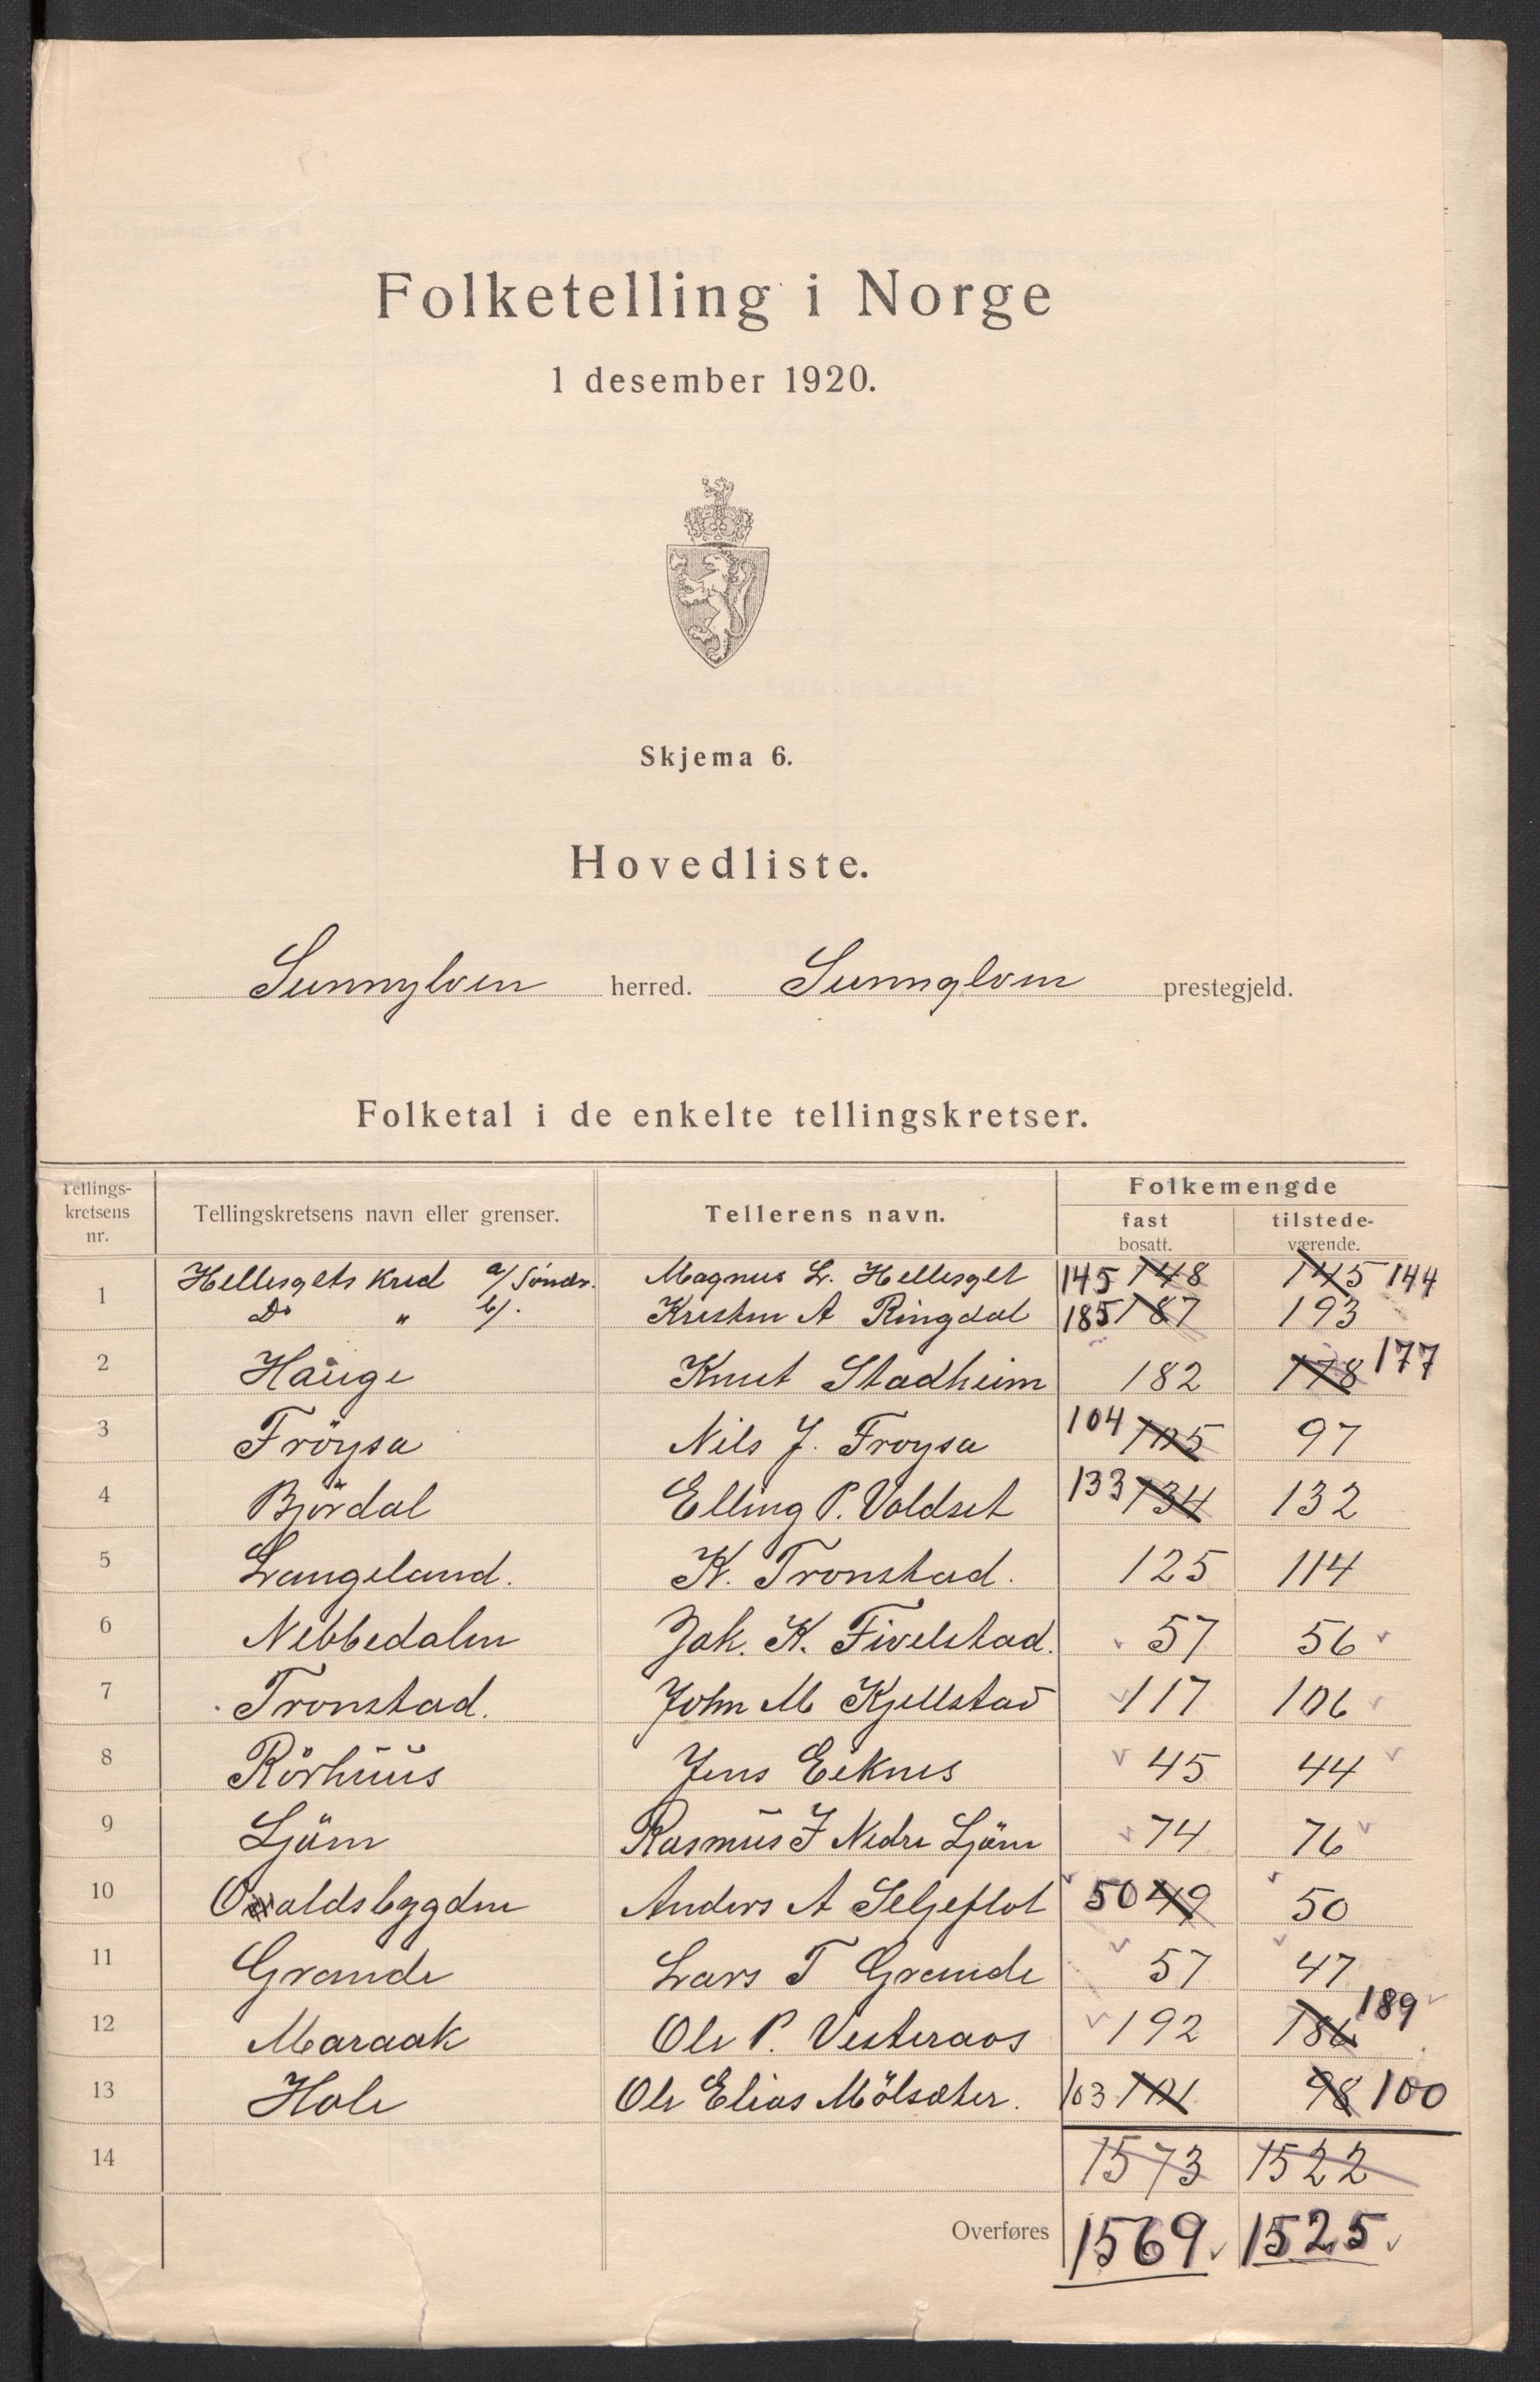 Folketelling i Norge
1 desember 1920.
Skjema 6.
Hovedliste.
Sunnylven herred. Sunnylven prestegjeld.
Folketal i de enkelte tellingskretser.
Tellings-
kretsens
nr.
Tellingskretsens navn eller grenser.
Tellerens navn.
Folkemengde
fast
bosatt.
tilstede-
værende.
1 Hellesylts Kred a/ Söndr. Magnus L. Hellesylt 145 148 145 144
Do " b/. Kristen A Ringdal 185 187 193
2 Hauge Knut Stadheim 182 178 177
3 Fröysa Nils J. Froysa 104 105 97
4 Björdal Elling P. Voldset 133 134 132
5 Langeland. K. Tronstad. 125 114
6 Nebbedalen Jak. K. Fivelstad. 57 56
7 Tronstad. John M Kjellstad 117 106
8 Rörhuus Jens Eeknes 45 44
9 Ljöm Rasmus J Nedre Ljöm 74 76
10 Ovaldsbygden Anders A Seljeflot 50 49 50
11 Grande Lars T Grande 57 47
12 Maraak Ole P. Vesteraas 192 186 189
13 Hole Ole Elias Mölsæter. 103 101 98 100
14 1573 1522
Overføres 1569. 1525.